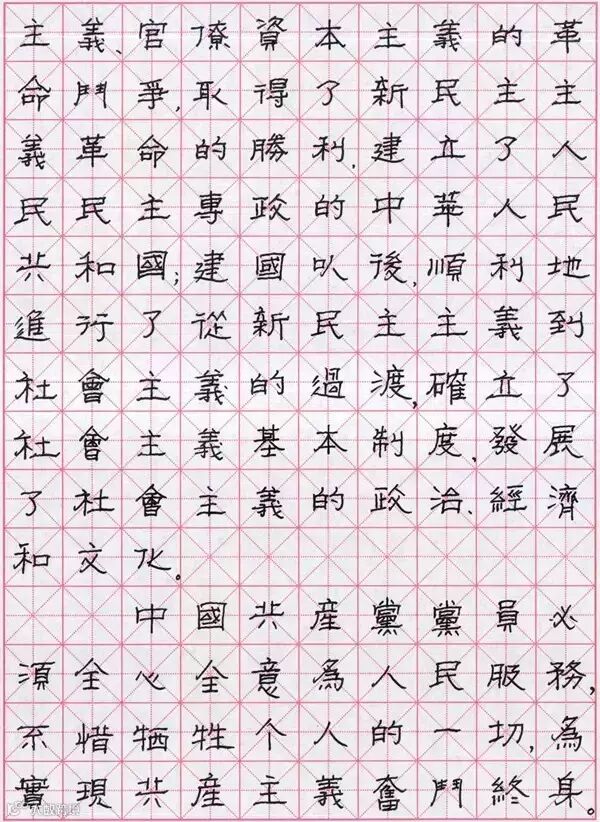 主義、官僚資本主義的革
命鬥爭,取得了新民主主
義革命的勝利,建立了人
民民主專政的中華人民
共和國;建國以後,順利地
進行了從新民主主義到
社會主義的過渡,確立了
社會主義基本制度,發展
了社會主義的政治、經濟
和文化。
中國共産黨黨員必
須全心全意為人民服務,
不惜牺牲个人的一切,為
實現共産主義奮鬥終身。